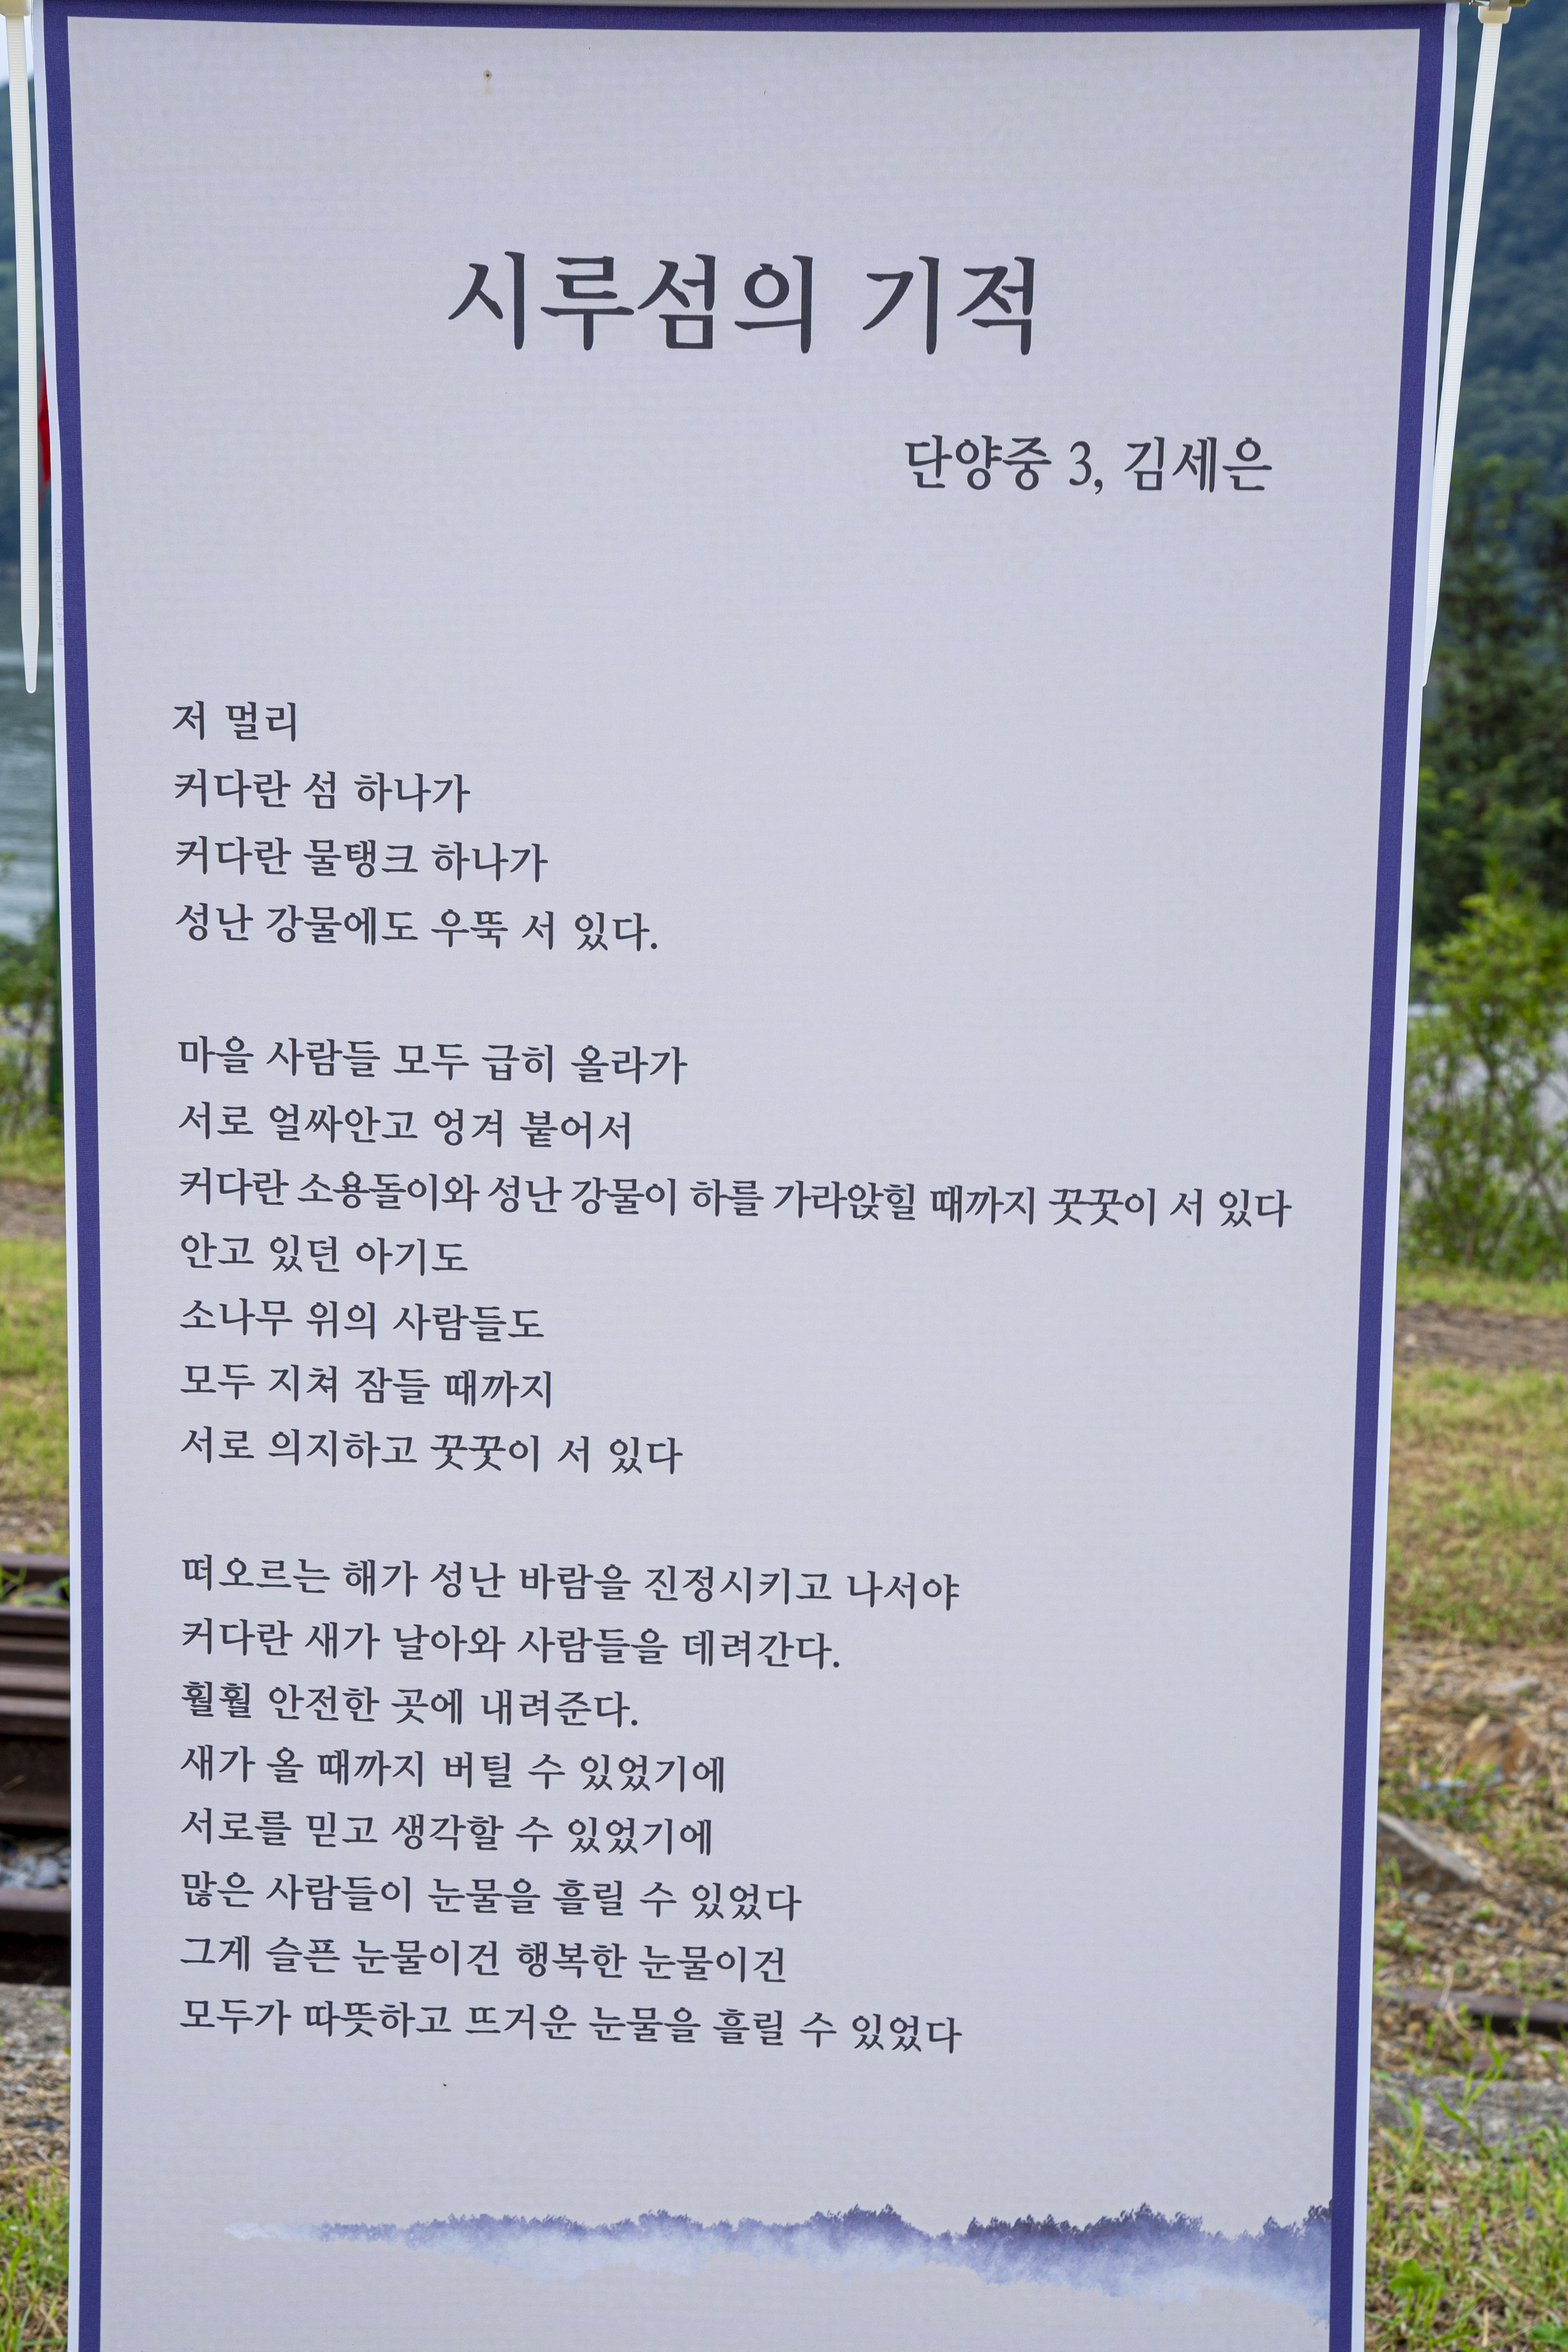 시루섬의 기적
단양중 3, 김세은
저 멀리
커다란 섬 하나가
커다란 물탱크 하나가
성난 강물에도 우뚝 서 있다.
마을 사람들 모두 급히 올라가
서로 얼싸안고 엉겨 붙어서
커다란 소용돌이와 성난 강물이 하를 가라앉힐 때까지 꿋꿋이 서 있다
안고 있던 아기도
소나무 위의 사람들도
모두 지쳐 잠들 때까지
서로 의지하고 꿋꿋이 서 있다
떠오르는 해가 성난 바람을 진정시키고 나서야
커다란 새가 날아와 사람들을 데려간다.
훨훨 안전한 곳에 내려준다.
새가 올 때까지 버틸 수 있었기에
서로를 믿고 생각할 수 있었기에
많은 사람들이 눈물을 흘릴 수 있었다
그게 슬픈 눈물이건 행복한 눈물이건
모두가 따뜻하고 뜨거운 눈물을 흘릴 수 있었다